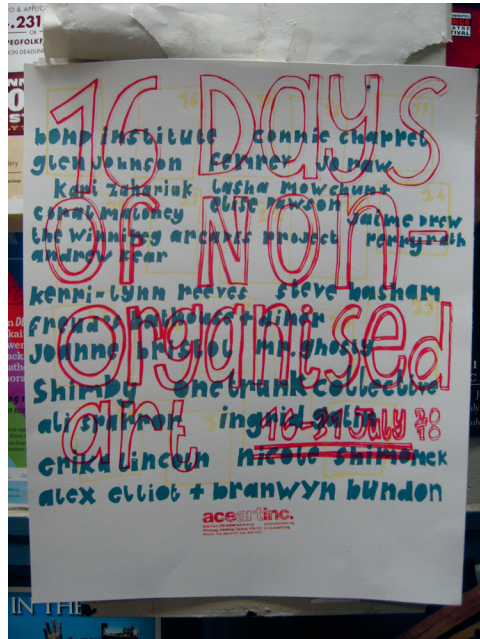 & APPLIC
.231
OR
PEGFOLKF
ON DEADLIN
16 Days
of Non-
organised
art
16-31 July 2010
bono institute connie chappel
glen johnson ferrer jo raw
keri zahariuk tasha mowchun+
elise rawson
coral maloney jaime drew
the winnipeg arcades project perry rath
andrew kear
kerri-lynn reeves steve basham
freud's bathouse + diner
joanne bristol mr. ghosty
shimby one trunk collective
ingrid
erika lincoln nicole shimonek
alex elliot + branwyn bundon
aceartinc.
IN THE